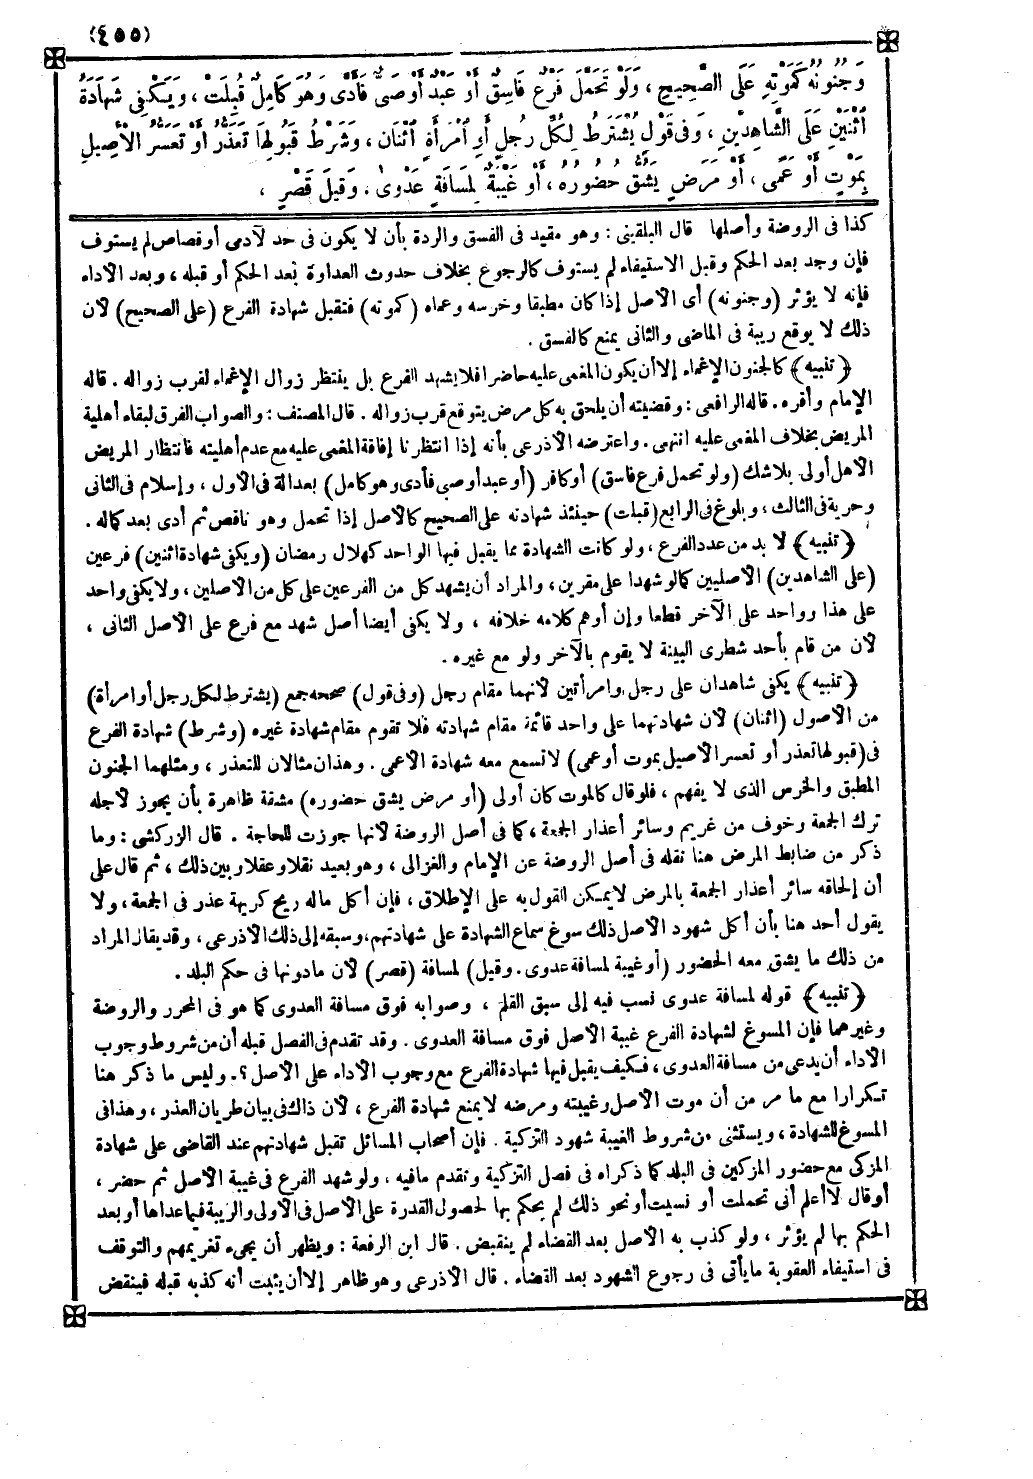 (٤٥٥)
وَجُنُونُهُ كَمَوْتِهِ عَلَى الصَّحِيحِ ، وَلَوْ تَحَمَّلَ فَرْعٌ فَاسِقٌ أَوْ عَبْدٌ أَوْ صَبِيٌّ فَأَدَّى وَهُوَ كَامِلٌ قُبِلَتْ ، وَيَكْفِي شَهَادَةُ
اثْنَيْنِ عَلَى الشَّاهِدَيْنِ ، وَفِي قَوْلٍ يُشْتَرَطُ لِكُلِّ رَجُلٍ أَوِ امْرَأَةٍ اثْنَانِ ، وَشَرْطُ قَبُولِهَا تَعَذُّرُ أَوْ تَعَسُّرُ الْأَصِيلِ
بِمَوْتٍ أَوْ عَمًى ، أَوْ مَرَضٍ يَشُقُّ حُضُورُهُ ، أَوْ غَيْبَةٌ لِمَسَافَةِ عَدْوَى ، وَقِيلَ قَصْرٍ ،
كذا فى الروضة وأصلها قال البلقينى : وهو مقيد فى الفسق والردة بأن لا يكون فى حد لآدمى أو قصاص لم يستوف
فإن وجد بعد الحكم وقبل الاستيفاء لم يستوف كالرجوع بخلاف حدوث العداوة بعد الحكم أو قبله ، وبعد الأداء
فإنه لا يؤثر (وجنونه) أى الأصل إذا كان مطبقا وخرسه وعماه (كموته) فتقبل شهادة الفرع (على الصحيح) لأن
ذلك لا يوقع ريبة فى الماضى والثانى يمنع كالفسق .
﴿تنبيه﴾ كالجنون الإغماء إلا أن يكون المغمى عليه حاضرا فلا يشهد الفرع بل ينتظر زوال الإغماء لقرب زواله . قاله
الإمام وأقره . قاله الرافعى : وقضيته أن يلحق به كل مرض يتوقع قرب زواله . قال المصنف : والصواب الفرق لبقاء أهلية
المريض بخلاف المغمى عليه انتهى . واعترضه الأذرعى بأنه إذا انتظرنا إفاقة المغمى عليه مع عدم أهليته فانتظار المريض
الأهل أولى بلاشك (ولو تحمل فرع فاسق) أو كافر (أو عبد أو صبى فأدى وهو كامل) بعدالة فى الأول ، وإسلام فى الثانى
وحرية فى الثالث ، وبلوغ فى الرابع (قبلت) حينئذ شهادته على الصحيح كالأصل إذا تحمل وهو ناقص ثم أدى بعد كماله .
﴿تنبيه﴾ لا بد من عدد الفرع ، ولو كانت الشهادة مما يقبل فيها الواحد كهلال رمضان (ويكفى شهادة اثنين) فرعين
(على الشاهدين) الأصليين كما لو شهدا على مقرين ، والمراد أن يشهد كل من الفرعين على كل من الأصلين ، ولا يكفى واحد
على هذا وواحد على الآخر قطعا وإن أوهم كلامه خلافه ، ولا يكفى أيضا أصل شهد مع فرع على الأصل الثانى ،
لأن من قام بأحد شطرى البينة لا يقوم بالآخر ولو مع غيره .
﴿تنبيه﴾ يكفى شاهدان على رجل وامرأتين لأنهما مقام رجل (وفى قول) صححه جمع (يشترط لكل رجل أو امرأة)
من الأصول (اثنان) لأن شهادتهما على واحد قائمة مقام شهادته فلا تقوم مقام شهادة غيره (وشرط) شهادة الفرع
فى (قبولها تعذر أو تعسر الأصيل بموت أو عمى) لا تسمع معه شهادة الأعمى . وهذان مثالان للتعذر ، ومثلهما الجنون
المطبق والخرس الذى لا يفهم ، فلو قال كالموت كان أولى (أو مرض يشق حضوره) مشقة ظاهرة بأن يجوز لأجله
ترك الجمعة وخوف من غريم وسائر أعذار الجمعة ، كما فى أصل الروضة لأنها جوزت للحاجة . قال الزركشى : وما
ذكر من ضابط المرض هنا نقله فى أصل الروضة عن الإمام والغزالى ، وهو بعيد نقلا وعقلا وبين ذلك ، ثم قال على
أن إلحاقه سائر أعذار الجمعة بالمرض لا يمكن القول به على الإطلاق ، فإن أكل ماله ريح كريهة عذر فى الجمعة ، ولا
يقول أحد هنا بأن أكل شهود الأصل ذلك سوغ سماع الشهادة على شهادتهم ، وسبقه إلى ذلك الأذرعى ، وقد يقال المراد
من ذلك ما يشق معه الحضور (أو غيبة لمسافة عدوى . وقيل) لمسافة (قصر) لأن مادونها فى حكم البلد .
﴿تنبيه﴾ قوله لمسافة عدوى نسب فيه إلى سبق القلم ، وصوابه فوق مسافة العدوى كما هو فى المحرر والروضة
وغيرهما فإن المسوغ لشهادة الفرع غيبة الأصل فوق مسافة العدوى . وقد تقدم فى الفصل قبله أن من شروط وجوب
الأداء أن يدعى من مسافة العدوى ، فكيف يقبل فيها شهادة الفرع مع وجوب الأداء على الأصل ؟ . وليس ما ذكر هنا
تكرارا مع ما مر من أن موت الأصل وغيبته ومرضه لا يمنع شهادة الفرع ، لأن ذاك فى بيان طريان العذر ، وهذا فى
المسوغ للشهادة ، ويستثنى من شروط الغيبة شهود التزكية . فإن أصحاب المسائل تقبل شهادتهم عند القاضى على شهادة
المزكى مع حضور المزكين فى البلد كما ذكراه فى فصل التزكية وتقدم مافيه ، ولو شهد الفرع فى غيبة الأصل ثم حضر ،
أو قال لا أعلم أنى تحملت أو نسيت أو نحو ذلك لم يحكم بها لحصول القدرة على الأصل فى الأولى والريبة فيما عداها أو بعد
الحكم بها لم يؤثر ، ولو كذب به الأصل بعد القضاء لم ينقبض . قال ابن الرفعة : ويظهر أن يجىء تغريمهم والتوقف
فى استيفاء العقوبة ما يأتى فى رجوع الشهود بعد القضاء . قال الأذرعى وهو ظاهر إلا أن يثبت أنه كذبه قبله فينقض